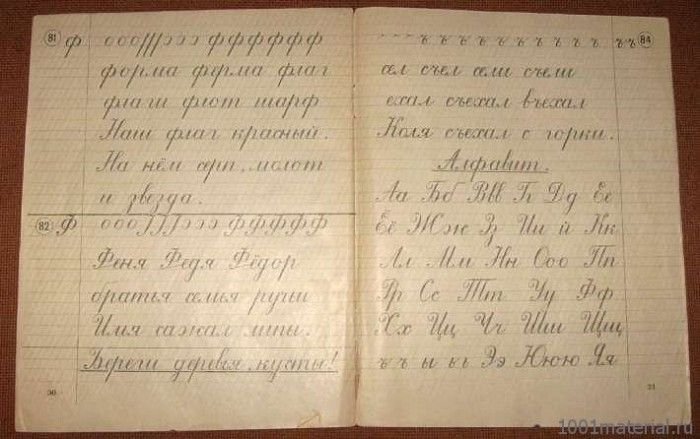 81 ф ооо ſſſ эээ ф ф ф ф ф ф
форма фирма флаг
флаги флот шарф
Наш флаг красный.
На нём серп, молот
и звезда.
82 Ф ооо ſſſ эээ Ф Ф Ф Ф Ф
Феня Федя Фёдор
братья семья ручьи
Илья сажал липы.
Береги деревья, кусты!
30
ъ ъ ъ ъ ъ ъ ъ ъ ъ ъ ъъ 84
сел съел сели съели
ехал съехал въехал
Коля съехал с горки.
Алфавит.
Аа Бб Вв Гг Дд Ее
Ёё Жж Зз Ии й Кк
Лл Мм Нн Оо Пп
Рр Сс Тт Уу Фф
Хх Цц Чч Шш Щщ
ъ ъ ы ь Ээ Юю Яя
31
1001material.ru